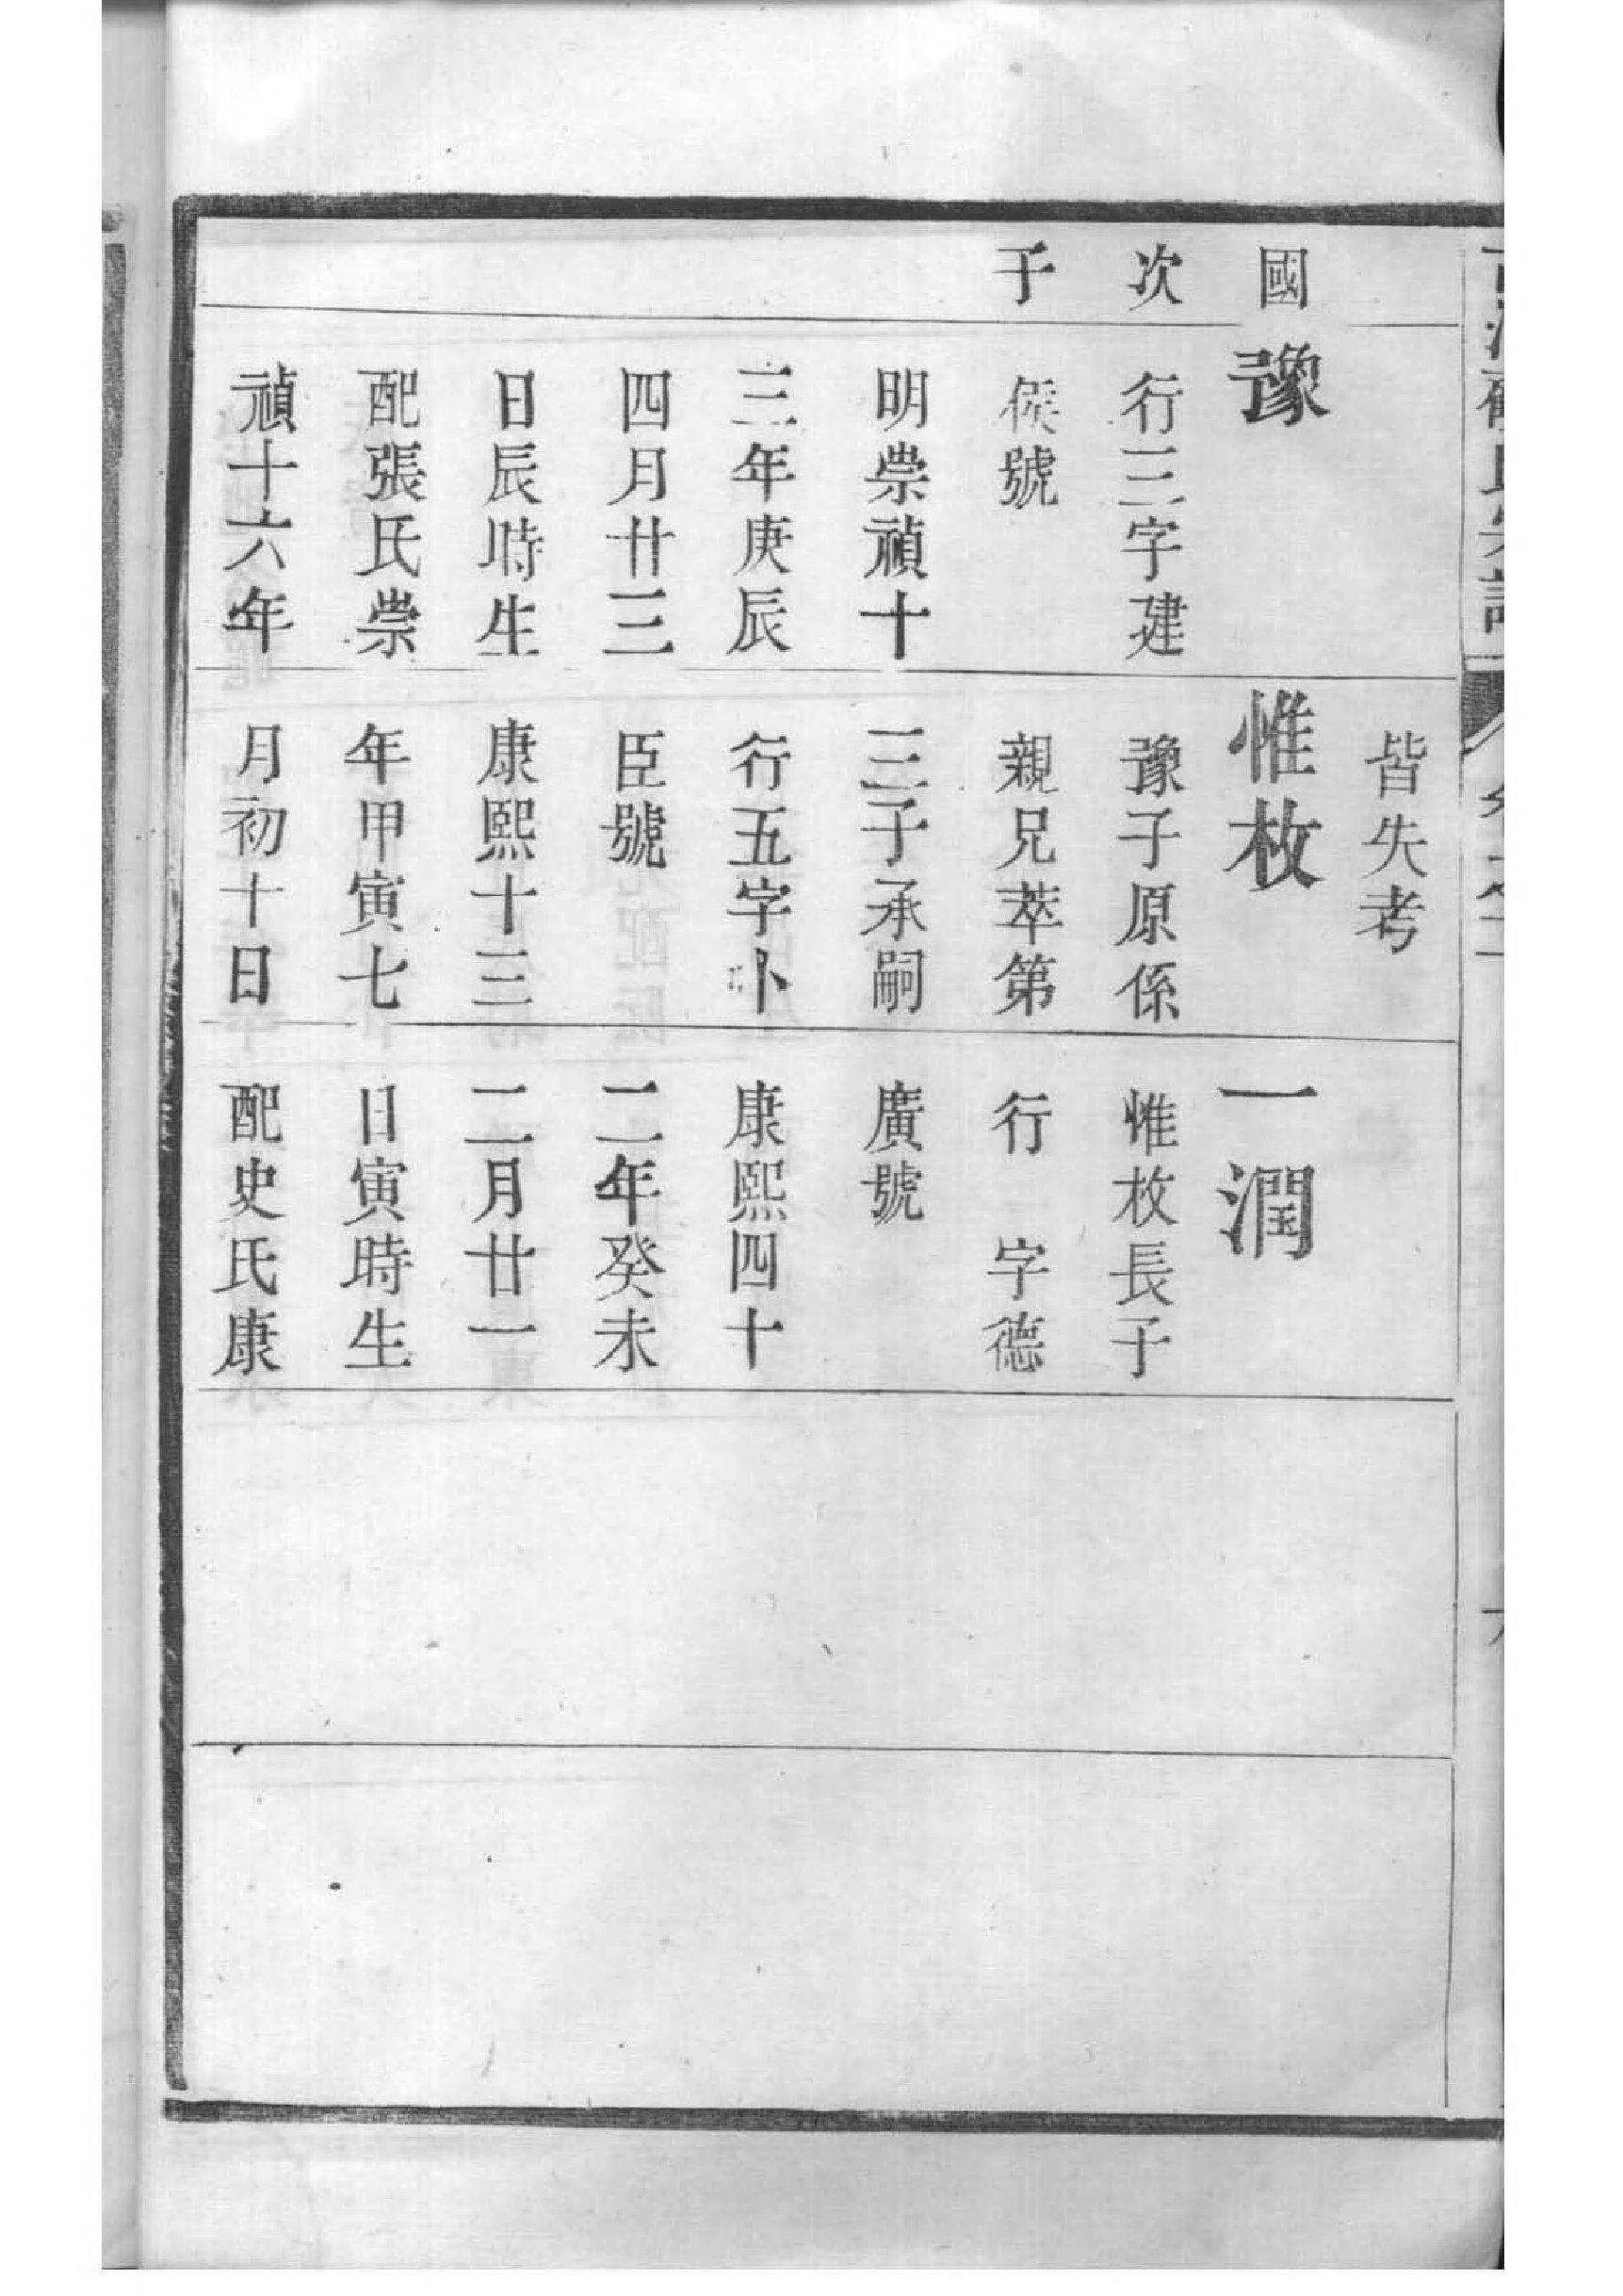 國
次
子
豫
行三字建
侯號
明崇禎十
三年庚辰
四月廿三
日辰時生
配張氏崇
禎十六年
皆失考
惟枚
豫子原係
親兄萃第
三子承嗣
行五字卜
臣號
康熙十三
年甲寅七
月初十日
一潤
惟枚長子
行 字德
廣號
康熙四十
二年癸未
二月廿一
日寅時生
配史氏康